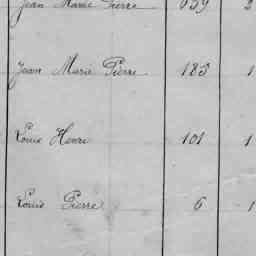 Jean Marie Pierre 659 2
Jean Marie Pierre 183 1
Louis Henri 101 1
Louis Pierre 6 1